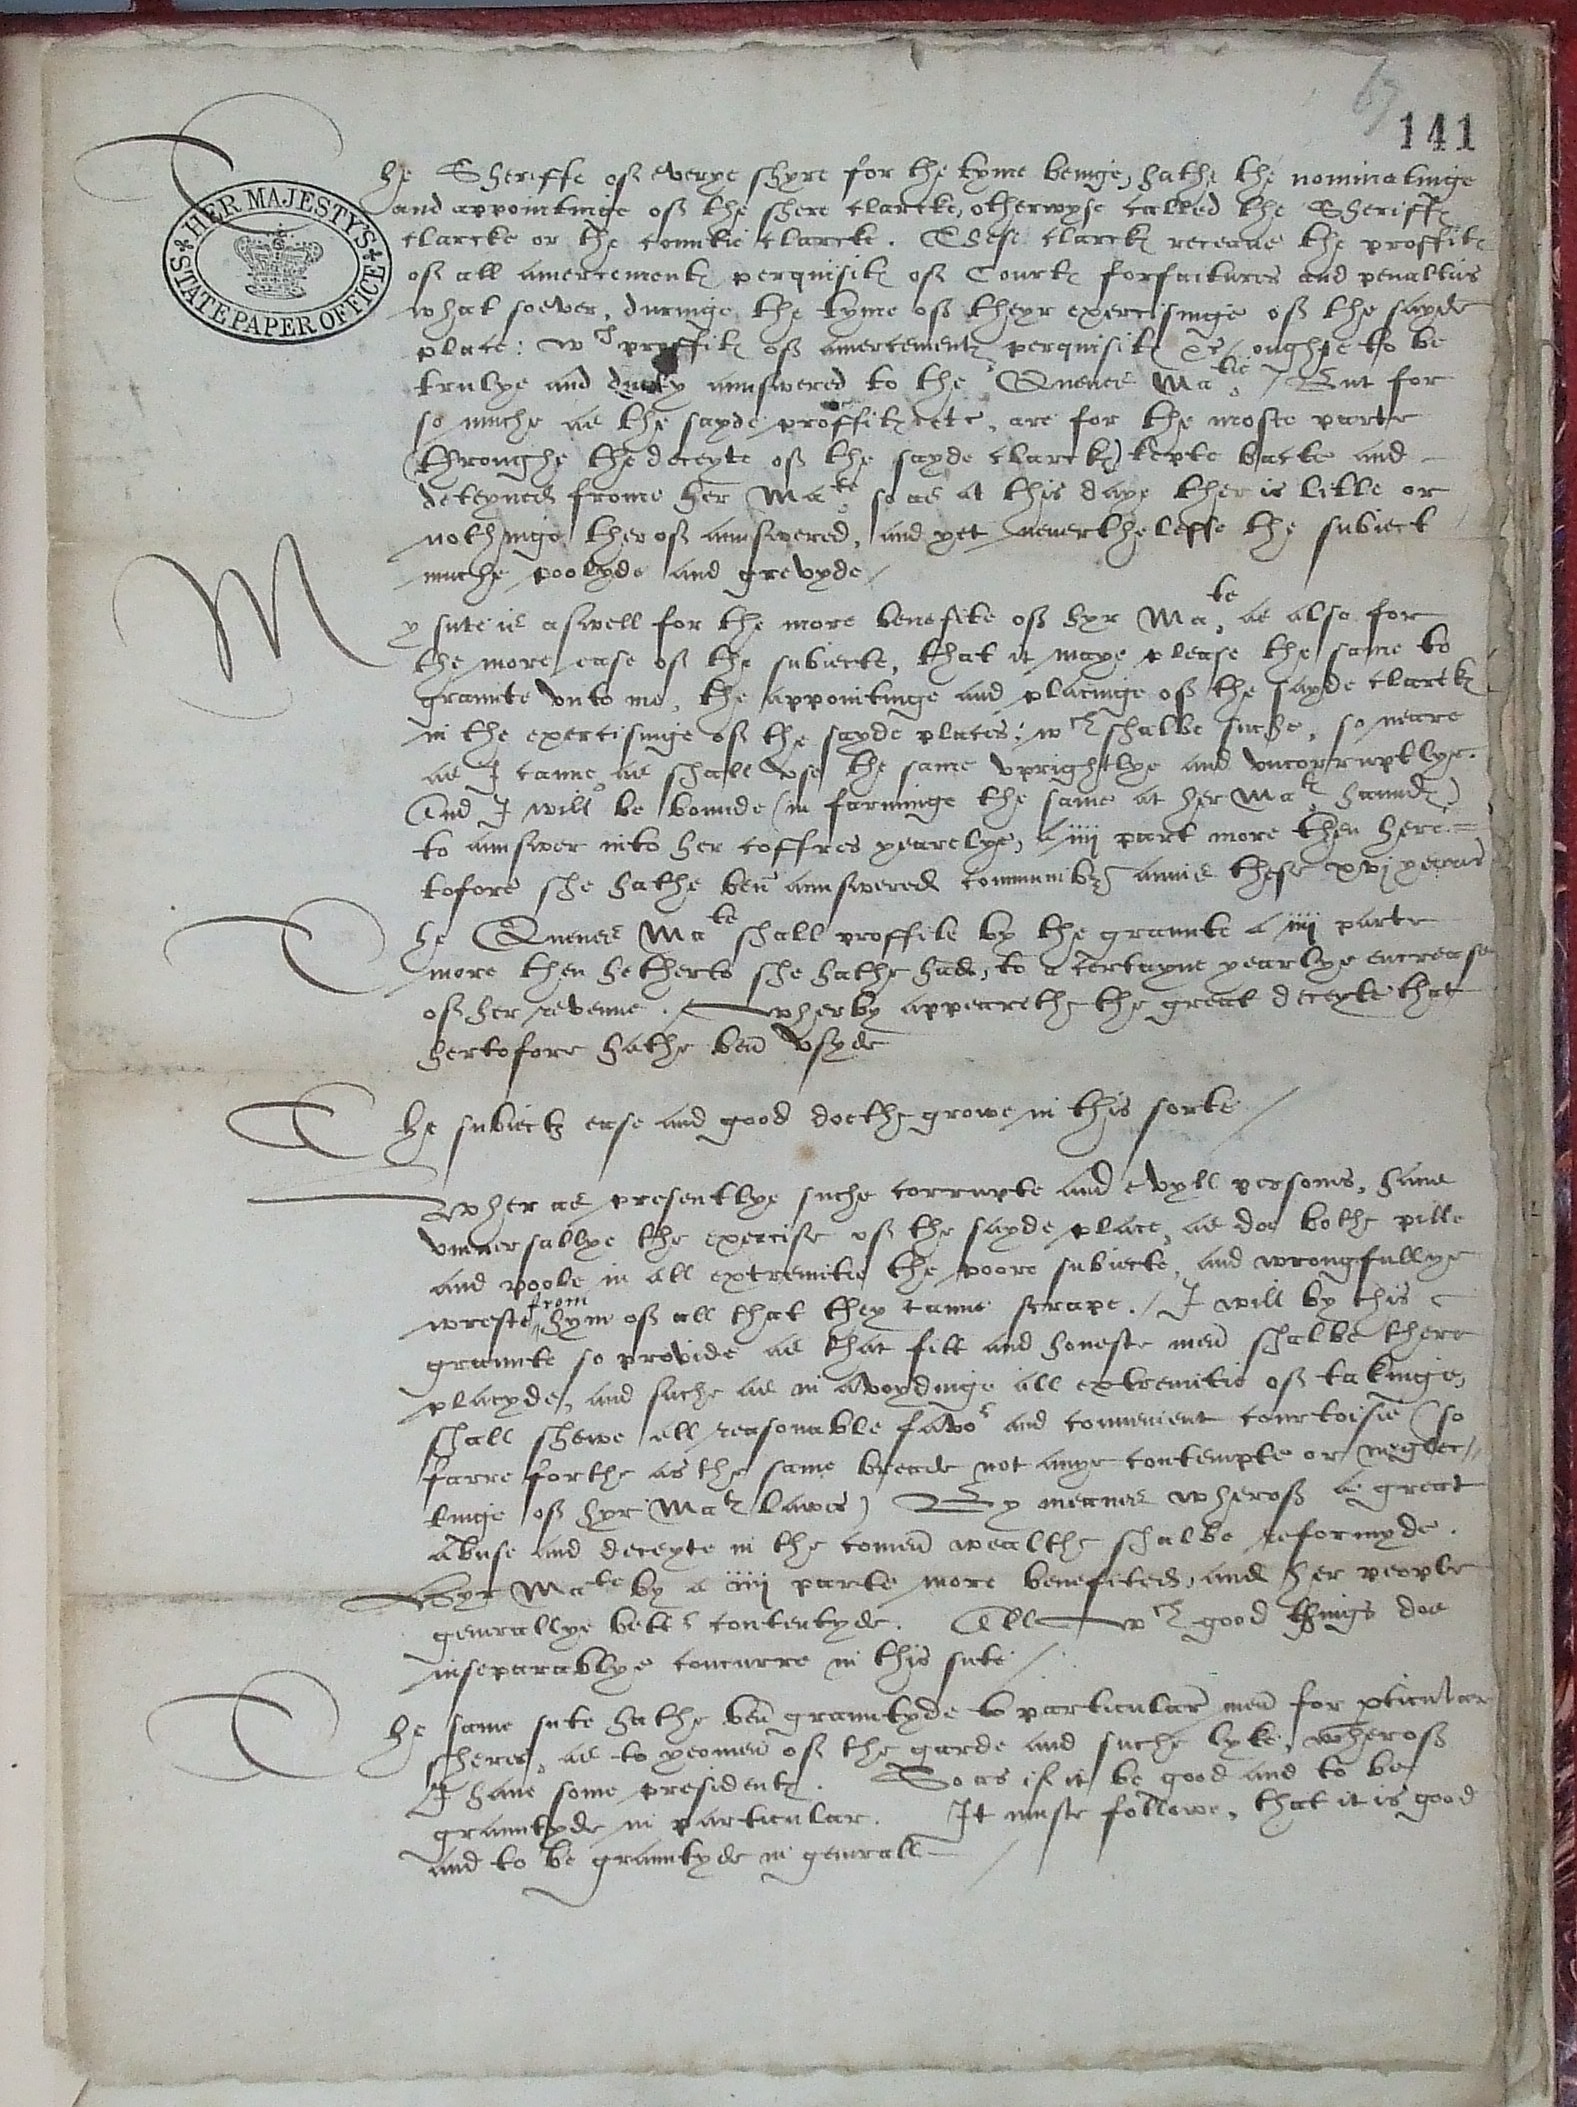 67
141
HER MAJESTY'S STATE PAPER OFFICE
The Sheriffe off everye shyre for the tyme beinge, hathe the nominatinge
and appointinge off the shere clarcke, otherwyse called the Sheriffes
clarcke or the countie clarcke. These clarckes receave the proffites
off all amercementes perquisites off Courtes forfaitures and penalties
what soever, duringe the tyme off theyr exercisinge off the sayde
place: wch proffites off amercementes perquisites &c / oughte to be
trulye and duely aunswered to the Quenes Matie / But for
so muche as the sayde proffites etc, are for the moste parte
(throughe the deceyte off the sayde clarckes) kepte backe and
deteyned frome her Matie so as at this daye ther is litle or
nothinge theroff aunswered, and yet neverthelesse the subiect
muche poolyde and grevyde /
My sute is aswell for the more benefite off hyr Matie, as also for
the more ease off the subiecte, that it maye please the same to
graunte vnto me, the appointinge and placinge off the sayde clarckes
in the exercisinge off the sayde places: wch shalbe suche, so neare
as I canne, as shall vse the same vprightlye and vncorruptlye.
And I will be bounde (in farminge the same at her Maties handes)
to aunswer into her coffres yearelye, a iiij part more then here=
tofore she hathe ben aunswered communibus annis these xvj yeares
The Quenes Matie shall proffite by the graunte a iiij parte
more then hetherto she hathe had, to a certayne yearlye encrease
off her revenue. / Wherby appearethe the great deceyte that
hertofore hathe ben vsyde
The subiectes ease and good doethe growe in this sorte /
Wher as presentlye suche corrupte and evyll persons, have
vniversallye the exercise off the sayde place, as doe bothe pille
and poole in all extremitie the poore subiecte, and wrongfullye
wreste from hym off all that they canne scrape. / I will by this
graunte so provide as that fitt and honeste men shalbe there
placyde, and suche as in avoydinge all extremitie off takinge,
shall shewe all reasonable favor and convenient courtoisie (so
farre forthe as the same breade not anye contempte or neglec//
tinge off hyr Maties lawes) By meanes wheroff a great
abuse and deceyte in the comen wealthe shalbe reformyde.
Hyr Matie by a iiij parte more benefited, and her people
generallye better contentyde. All wch good things doe
inseparablye concurre in this sute /
The same sute hathe ben grauntyde to particular men for pticular
sheres, as to yeomen off the garde and suche lyke, wheroff
I have some presidentes. So as if it be good and to be
grauntyde in particular. It muste followe, that it is good
and to be grauntyde in generall /